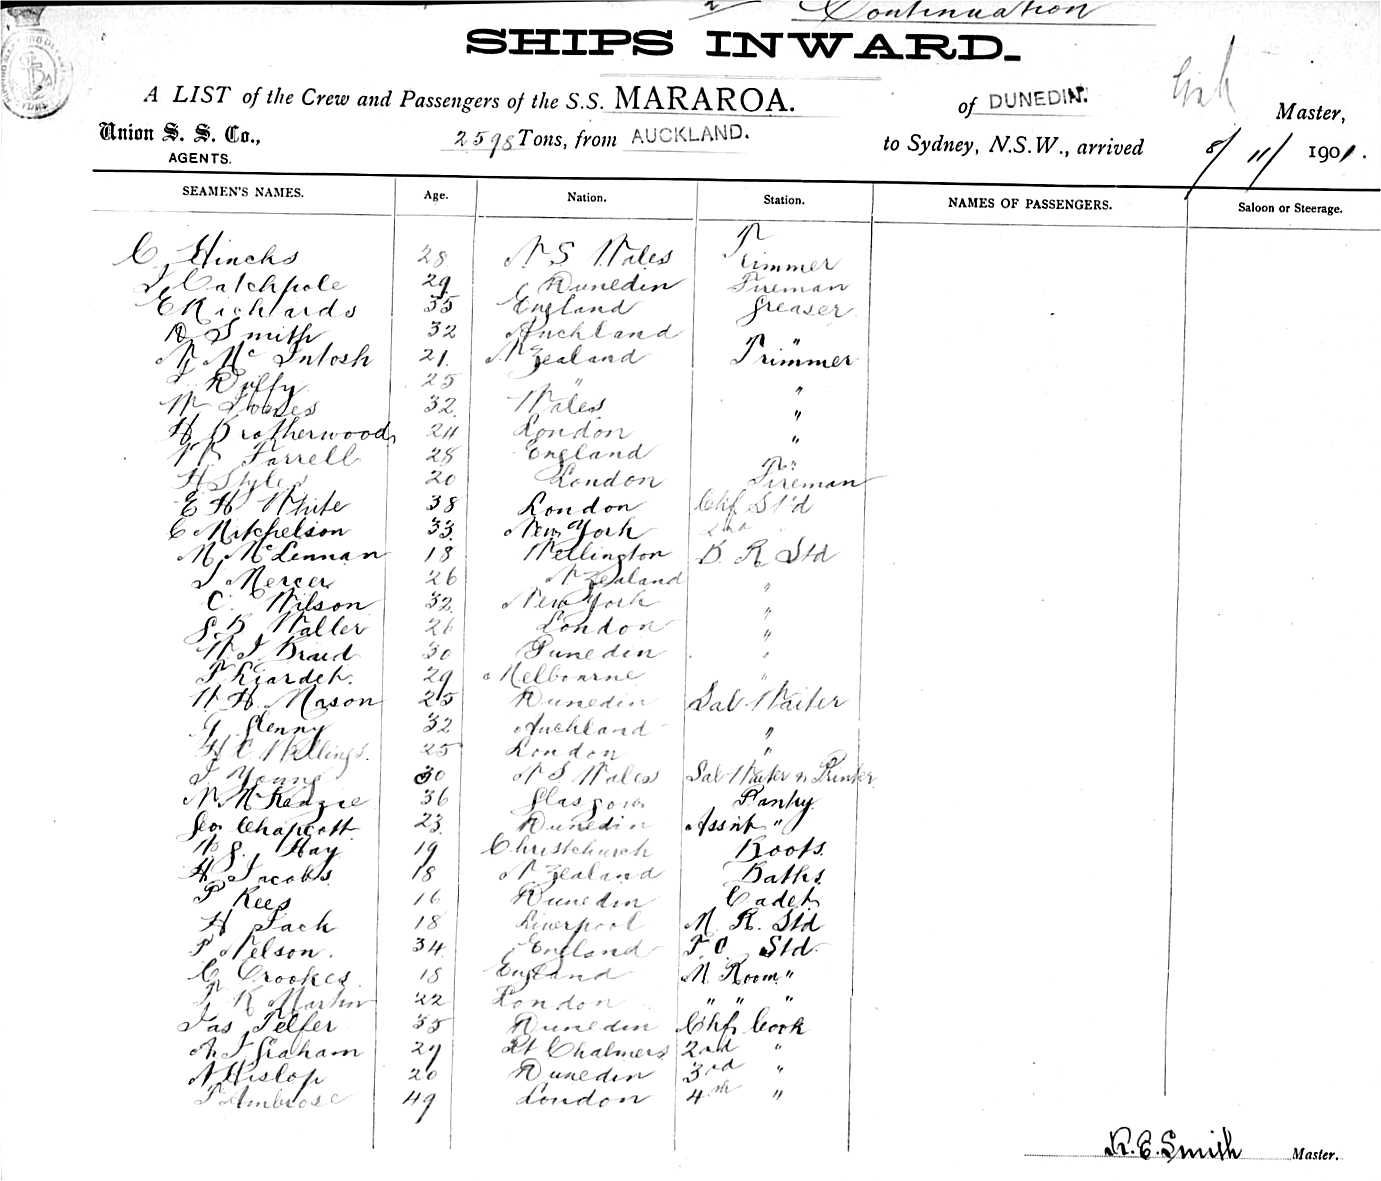 Continuation
SHIPS INWARD.
A LIST of the Crew and Passengers of the S.S. MARAROA. of DUNEDIN. Master,
Union S. S. Co., 2598 Tons, from AUCKLAND. to Sydney, N.S.W., arrived 8/ 11/ 1901.
AGENTS.
SEAMEN'S NAMES. Age. Nation. Station. NAMES OF PASSENGERS. Saloon or Steerage.
C Hincks 28 N. S. Wales Trimmer
Catchpole 29 Dunedin Fireman
E Richards 35 England Greaser
D Smith 32 Auckland "
Mc Intosh 21 N Zealand Trimmer
Duffy 25 " "
W Jones 32 Wales "
H Brotherwood 24 London "
Farrell 28 England "
H Styles 20 London Fireman
E H White 38 London Chf St'd
C Mitchelson 33 New York 2nd
M McLennan 18 Wellington B. R Std
J Mercer 26 N Zealand "
C. Wilson 32 New York "
G. B Waller 26 London "
W J Braid 30 Dunedin "
29 Melbourne "
W H Mason 25 Dunedin Sal Waiter
G Glenny 32 Auckland "
H C Willings 25 London "
J Young 30 N S Wales Sal Waiter & Printer
N McKenzie 36 Glasgow Pantry
Geo Chapcott 23 Dunedin Assnt "
W G. Hay 19 Christchurch Boots
H Jacobs 18 N Zealand Baths
P Rees 16 Dunedin Cadet
H Jack 18 Liverpool M. R. Std
P Nelson. 34 England F. C. Std.
C Crookes 18 England M Room "
T R Martin 22 London " " "
Jas Telfer 35 Dunedin Chf Cook
A. J Graham 29 Pt Chalmers 2nd "
N Hislop 20 Dunedin 3rd "
T Ambrose 49 London 4th "
R. E. Smith Master.